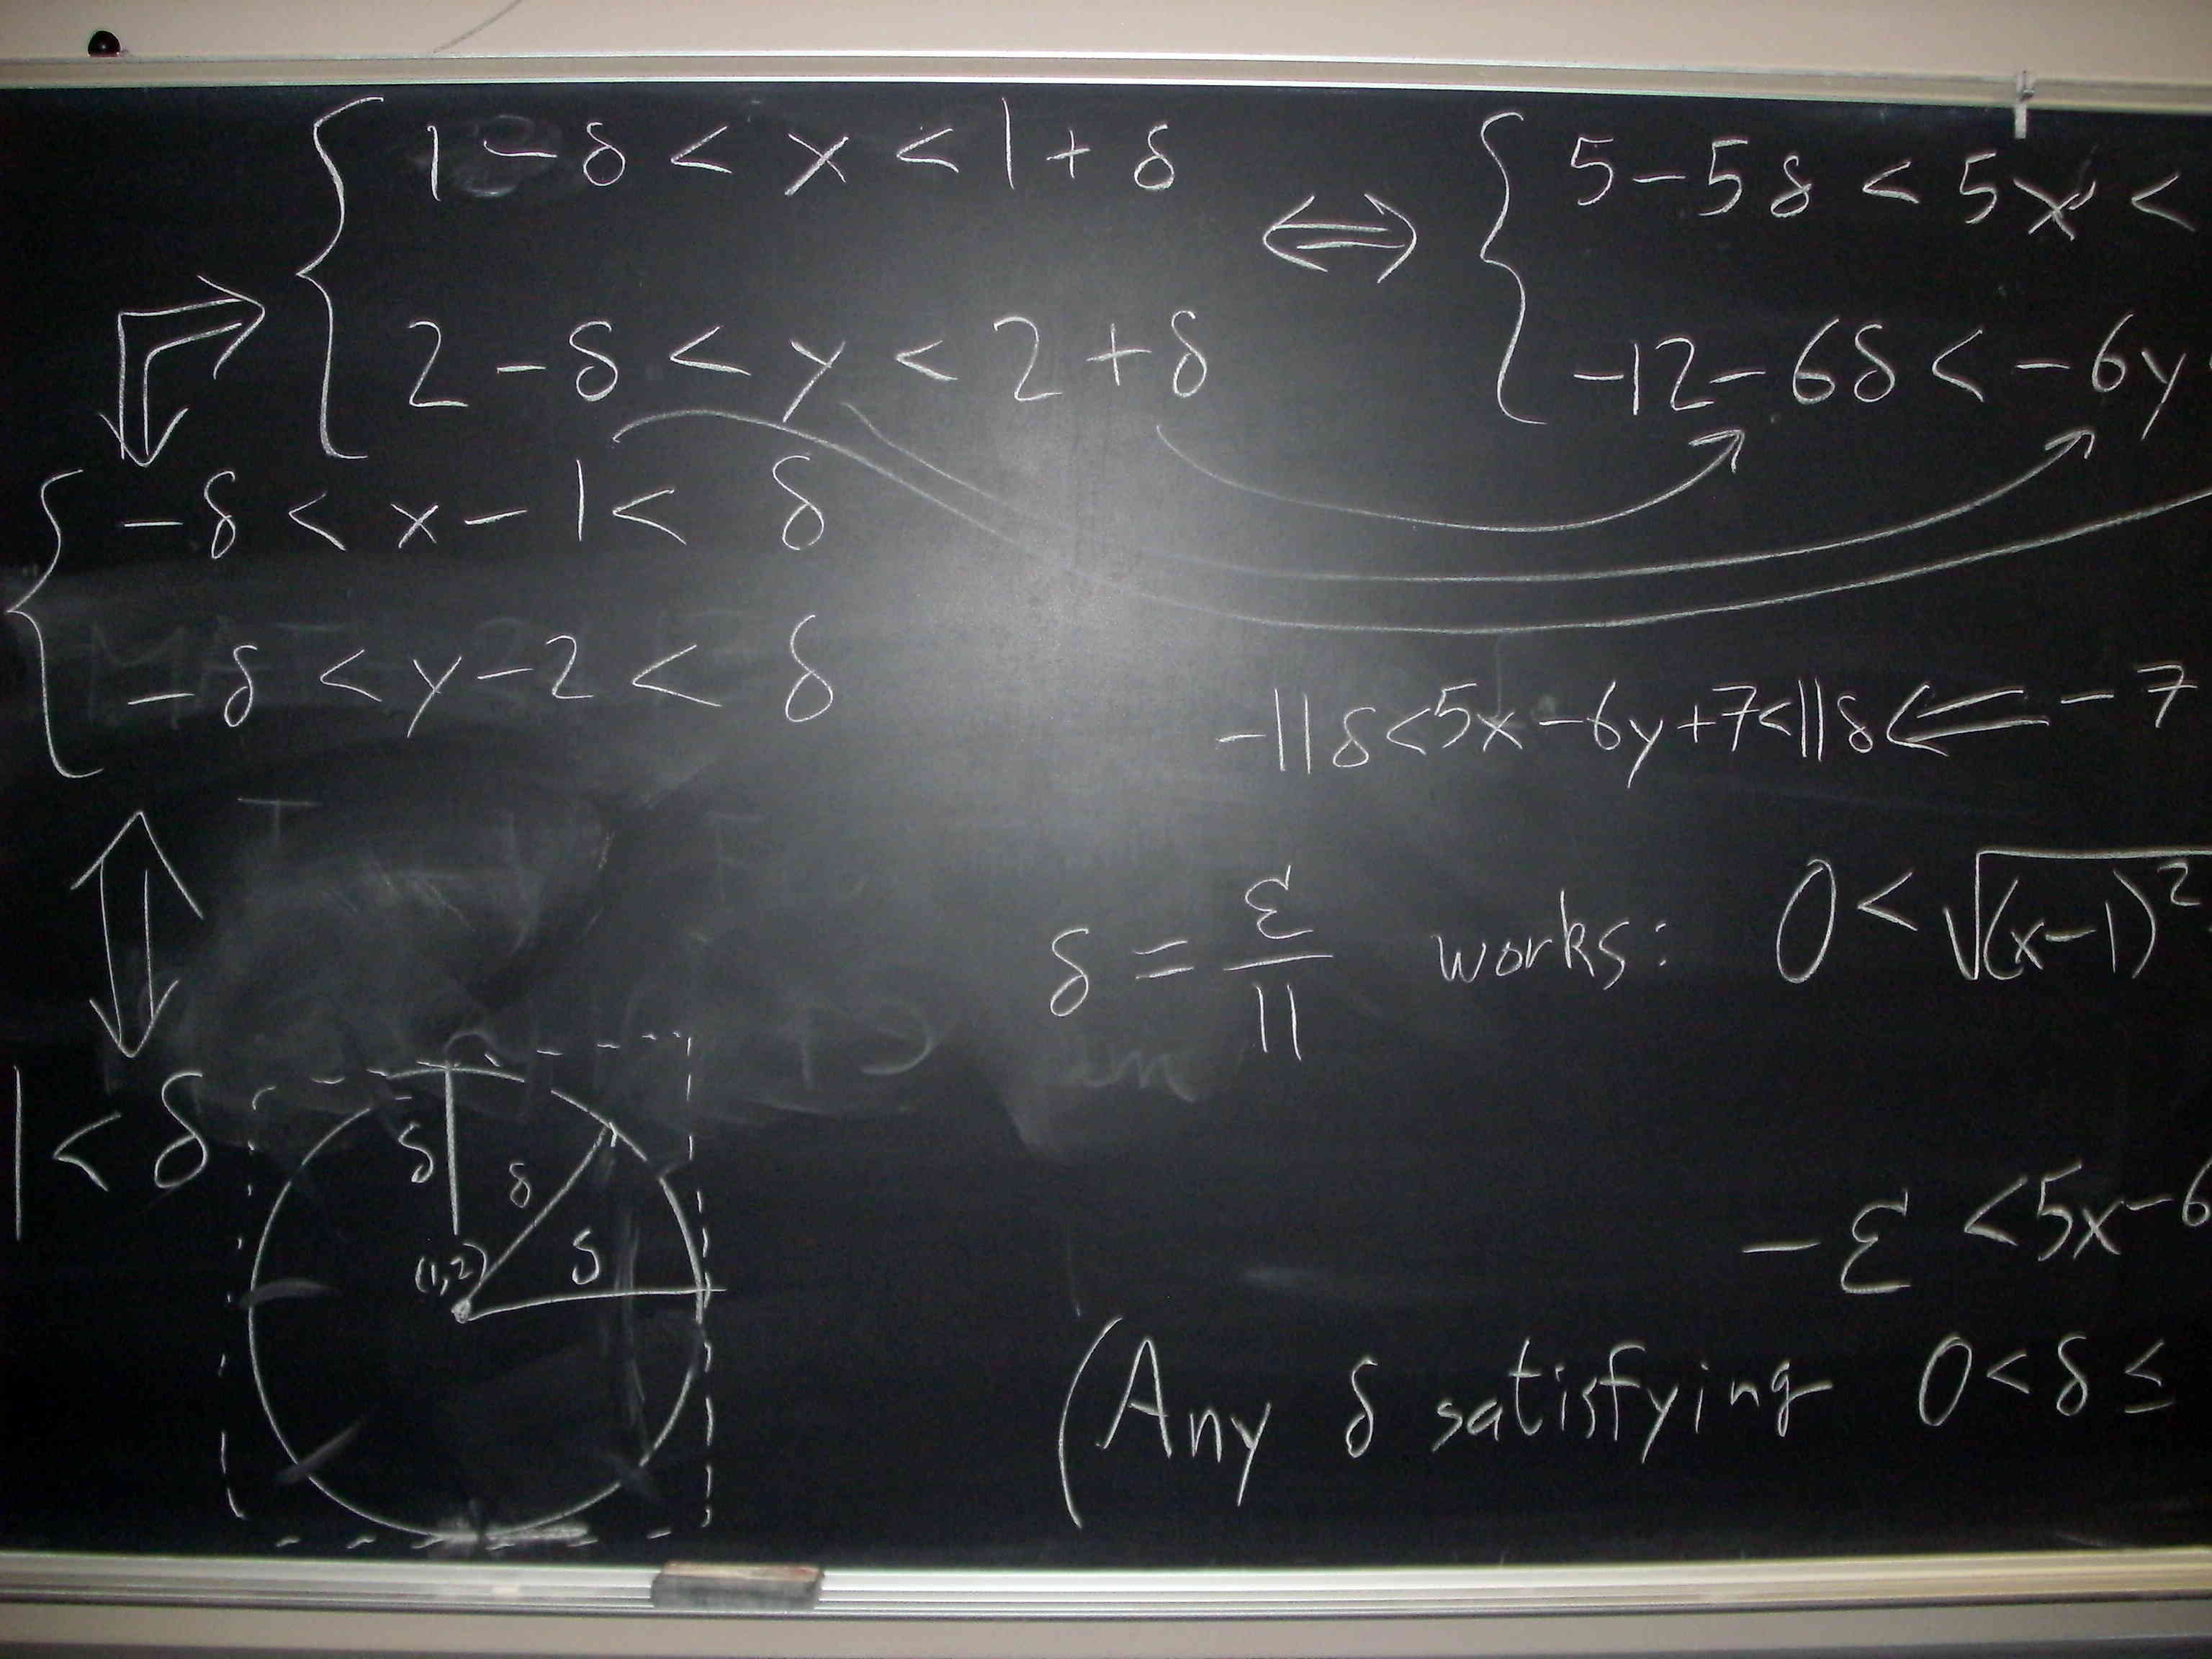 1 - δ < x < 1 + δ
2 - δ < y < 2 + δ
⇔
5 - 5δ < 5x <
-12 - 6δ < -6y
-δ < x - 1 < δ
-δ < y - 2 < δ
-11δ < 5x - 6y + 7 < 11δ ⇐ -7
δ = ε/11 works: 0 < √(x-1)²
| < δ
δ
δ
δ
(1,2)
-ε < 5x - 6
(Any δ satisfying 0 < δ ≤